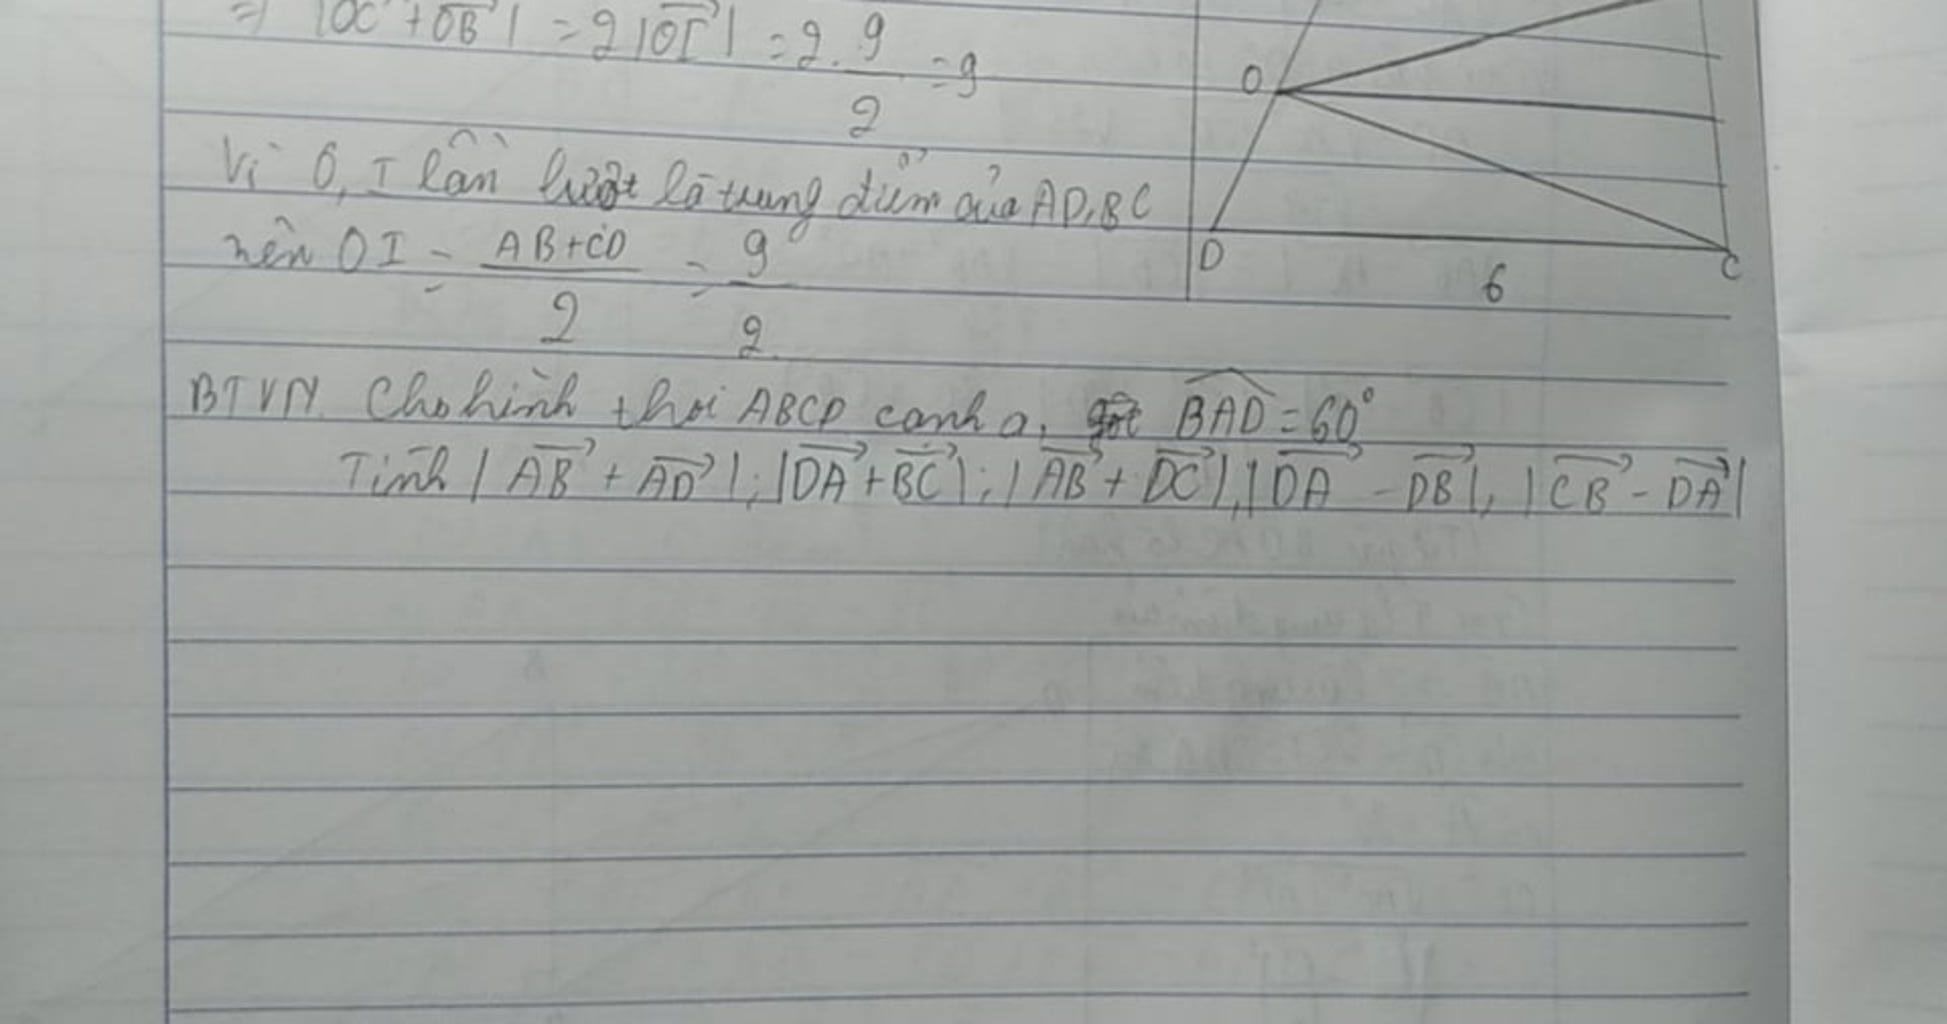 ⇒ |OC + OB| = 2|OI| = 2. 9/2 = 9
O
Vì O, I lần lượt là trung điểm của AD, BC
nên OI = AB+CD/2 = 9/2
D
C
6
BTVN Cho hình thoi ABCD cạnh a, BAD = 60°
Tính |AB + AD|; |DA + BC|; |AB + DC|, |DA - DB|, |CB - DA|